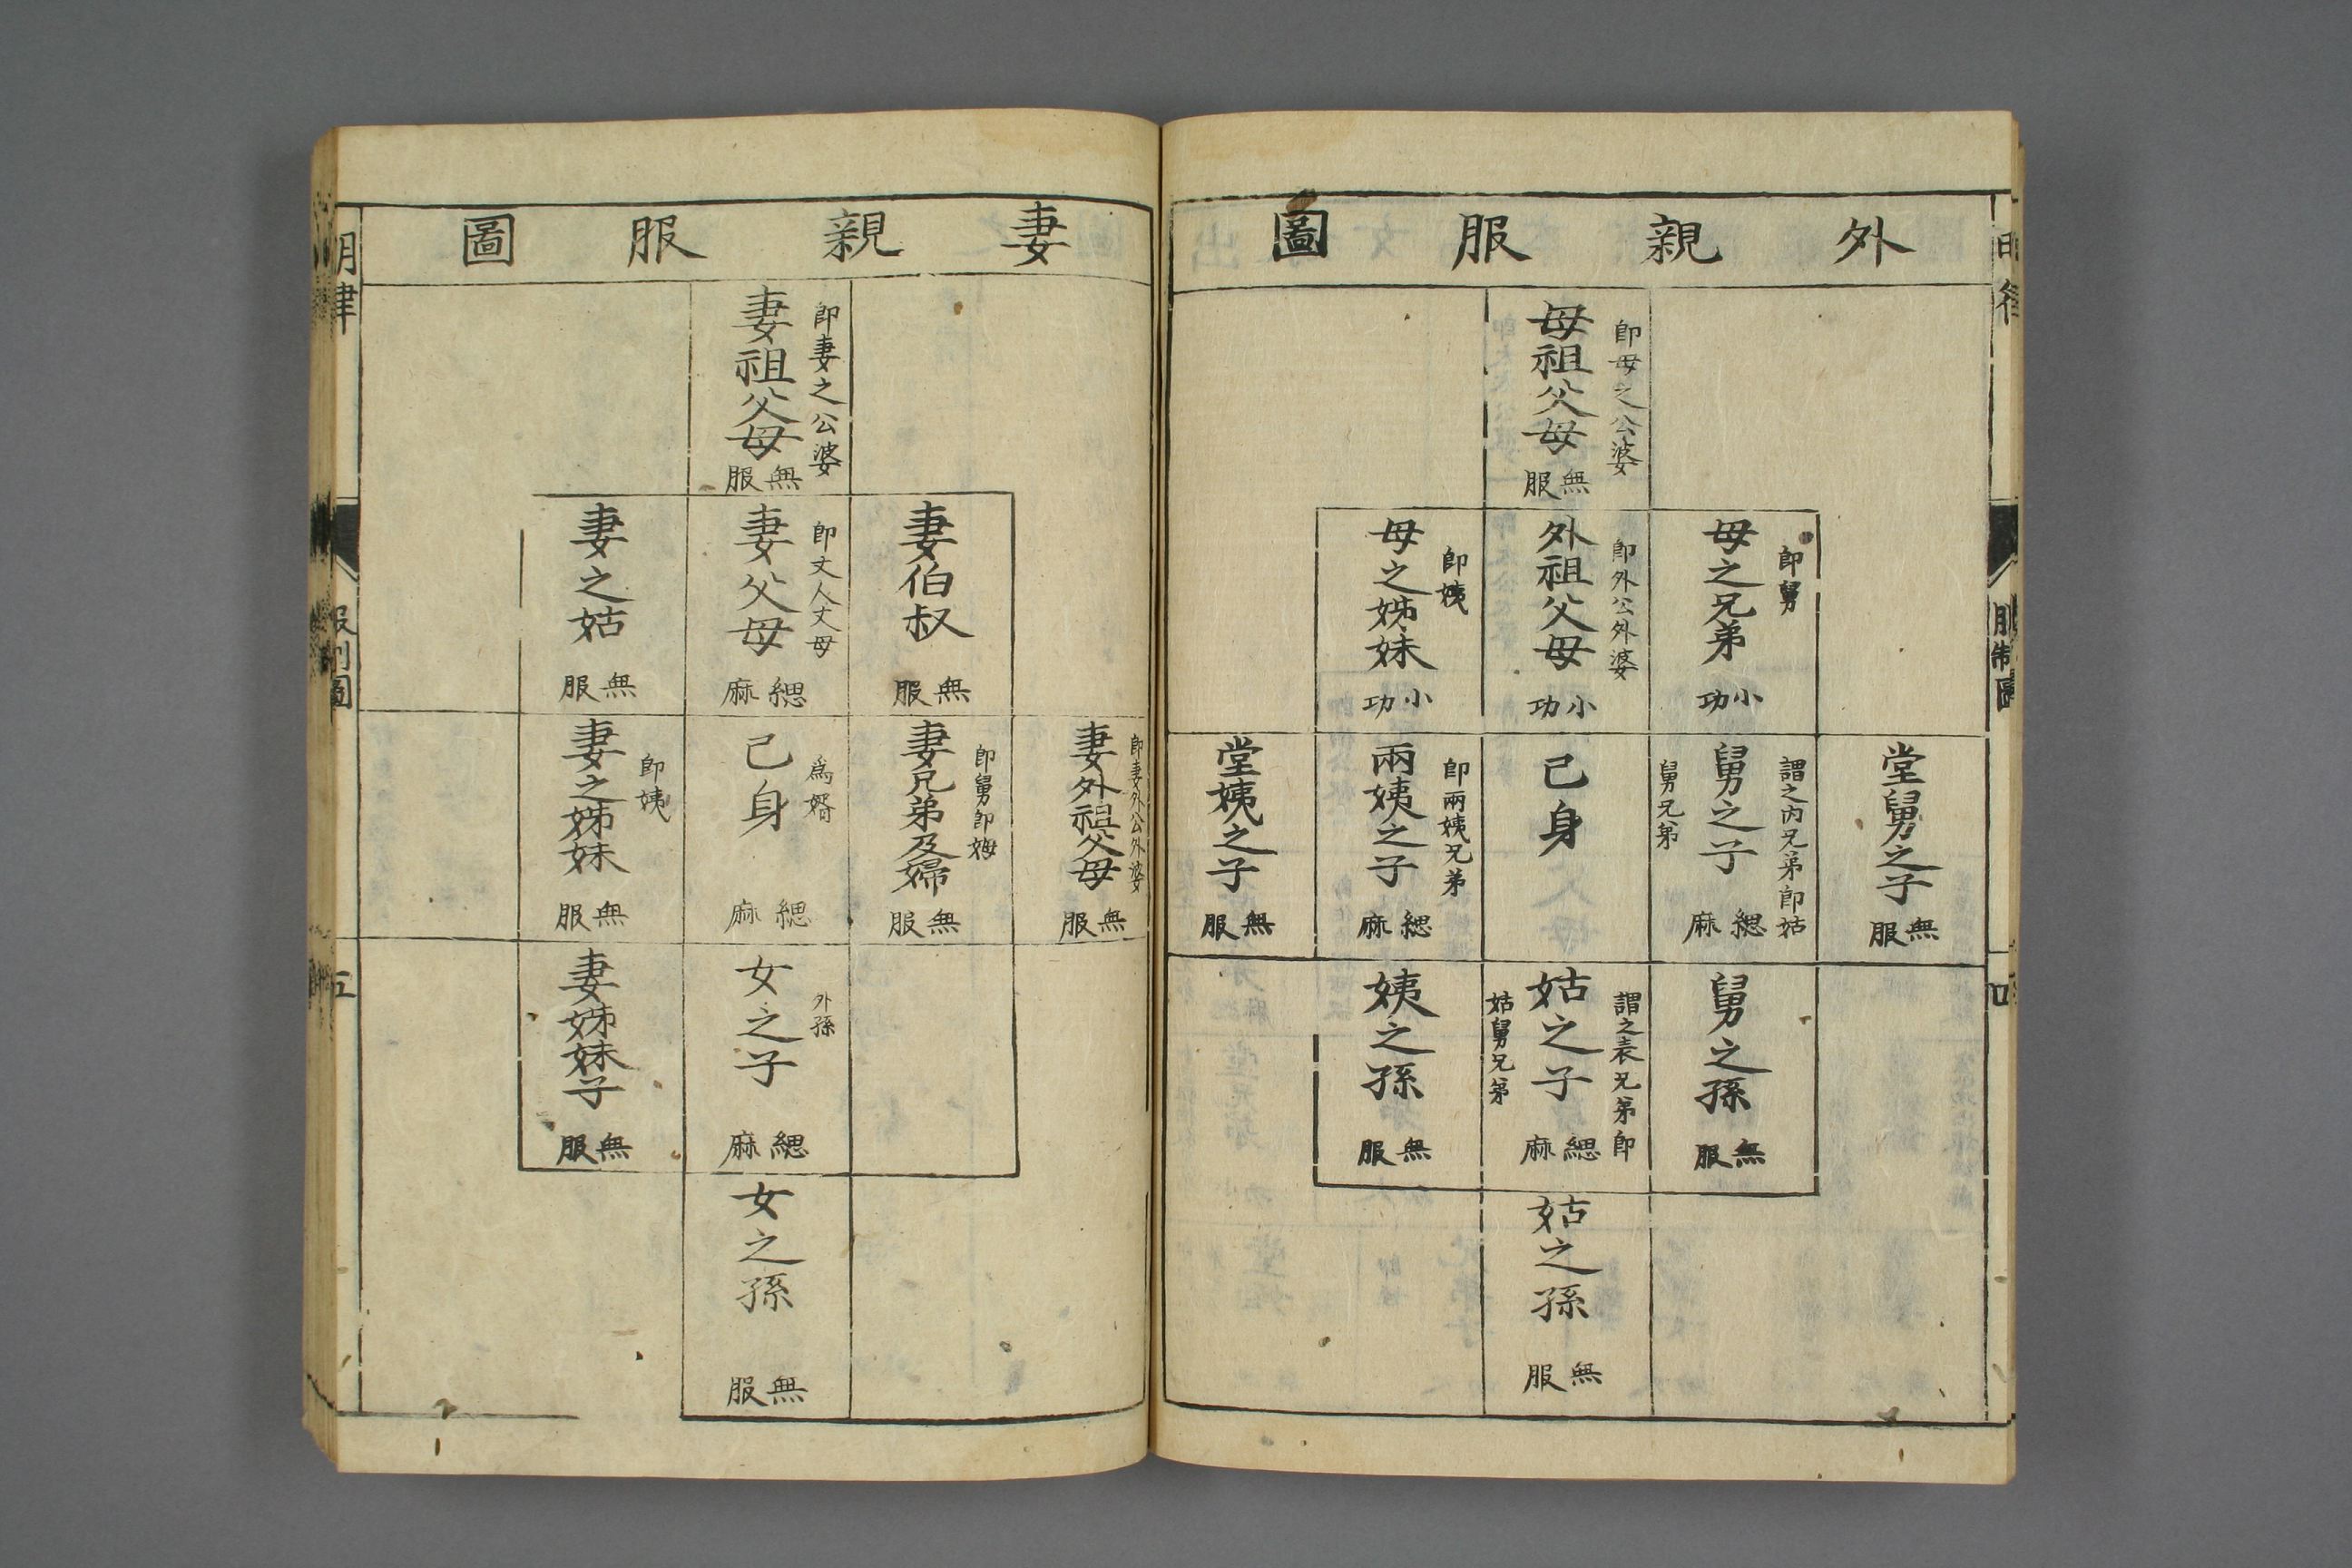 外親服圖
母祖父母
即母之公婆
無服
母之兄弟
即舅
小功
外祖父母
即外公外婆
小功
母之姊妹
即姨
小功
堂舅之子
無服
舅之子
謂之內兄弟即姑
舅兄弟
緦麻
己身
兩姨之子
即兩姨兄弟
緦麻
堂姨之子
無服
舅之孫
無服
姑之子
謂之表兄弟即
姑舅兄弟
緦麻
姨之孫
無服
姑之孫
無服
妻親服圖
妻祖父母
即妻之公婆
無服
妻伯叔
無服
妻父母
即丈人丈母
緦麻
妻之姑
無服
妻外祖父母
即妻外公外婆
無服
妻兄弟及婦
即舅即妗
無服
己身
為婿
緦麻
妻之姊妹
即姨
無服
女之子
外孫
緦麻
妻姊妹子
無服
女之孫
無服
明律
服制圖
五